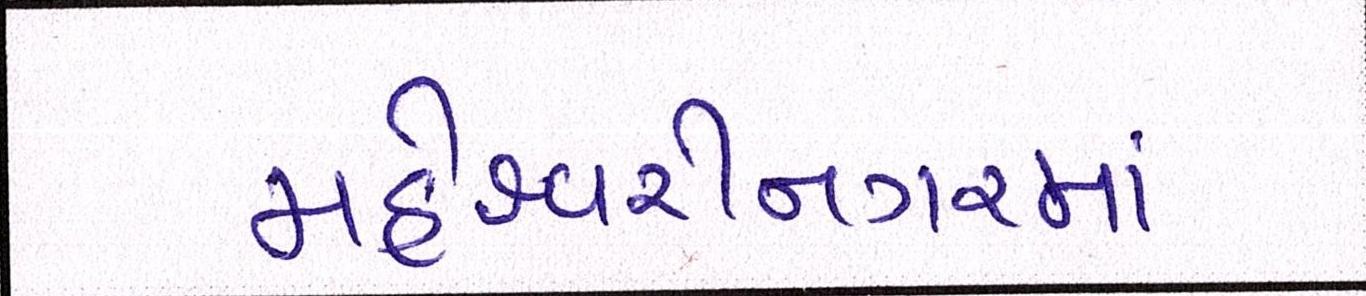 મહેશ્વરીનગરમાં